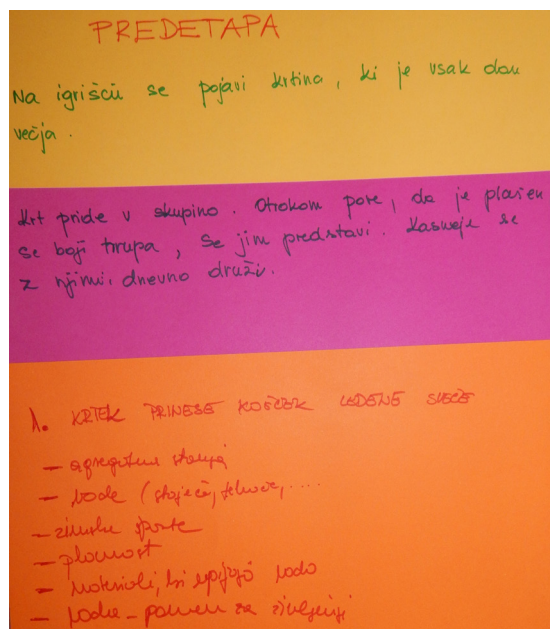 PREDETAPA
Na igrišču se pojavi krtina, ki je vsak dan
večja.
Krt pride v skupino. Otrokom pove, da je plašen
se boji hrupa, se jim predstavi. Kasneje se
z njimi dnevno druži.
1. KRTEK PRINESE KOŠČEK LEDENE SVEČE
- agregatna stanja
- vode (stoječe, tekoče, ....
- zimske športe
- plovnost
- materiali, ki vpijajo vodo
- voda - pomen za življenje